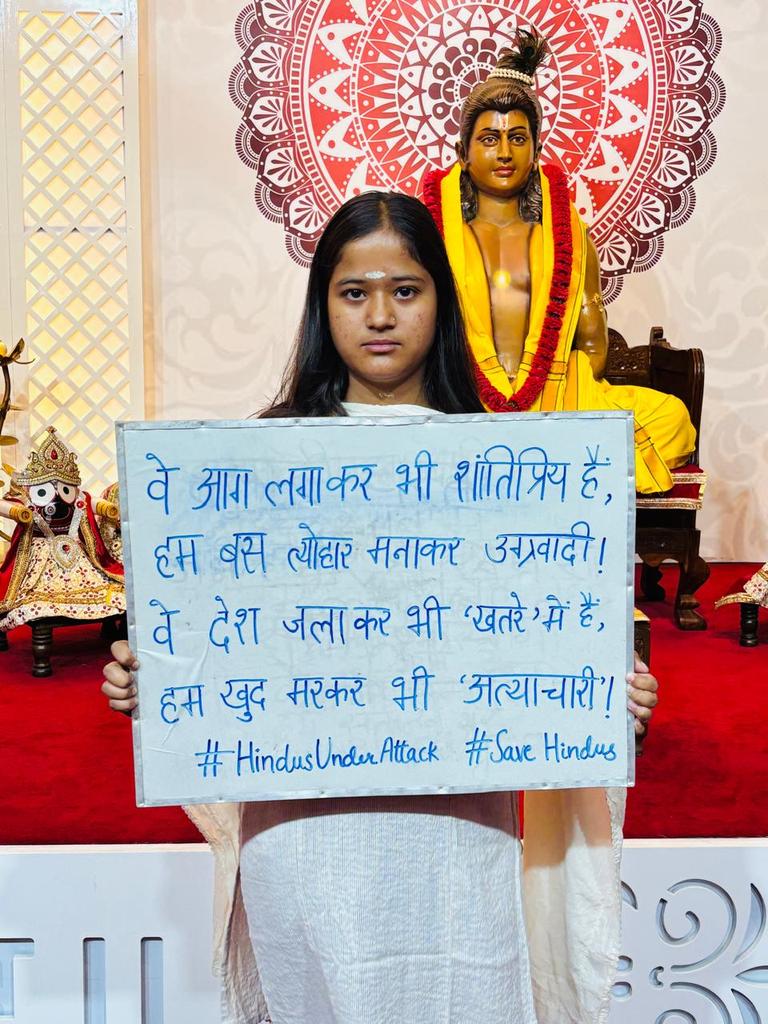 वे आग लगाकर भी शांतिप्रिय हैं,
हम बस त्योहार मनाकर उग्रवादी!
वे देश जलाकर भी 'खतरे' में हैं,
हम खुद मरकर भी 'अत्याचारी'!
#HindusUnderAttack #Save Hindus